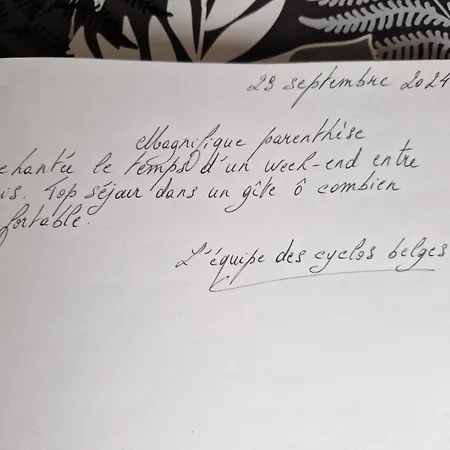 29 septembre 2024
Magnifique parenthèse
chantée le temps d'un week-end entre
is. Top séjour dans un gîte ô combien
fortable.
L'équipe des cyclos belges